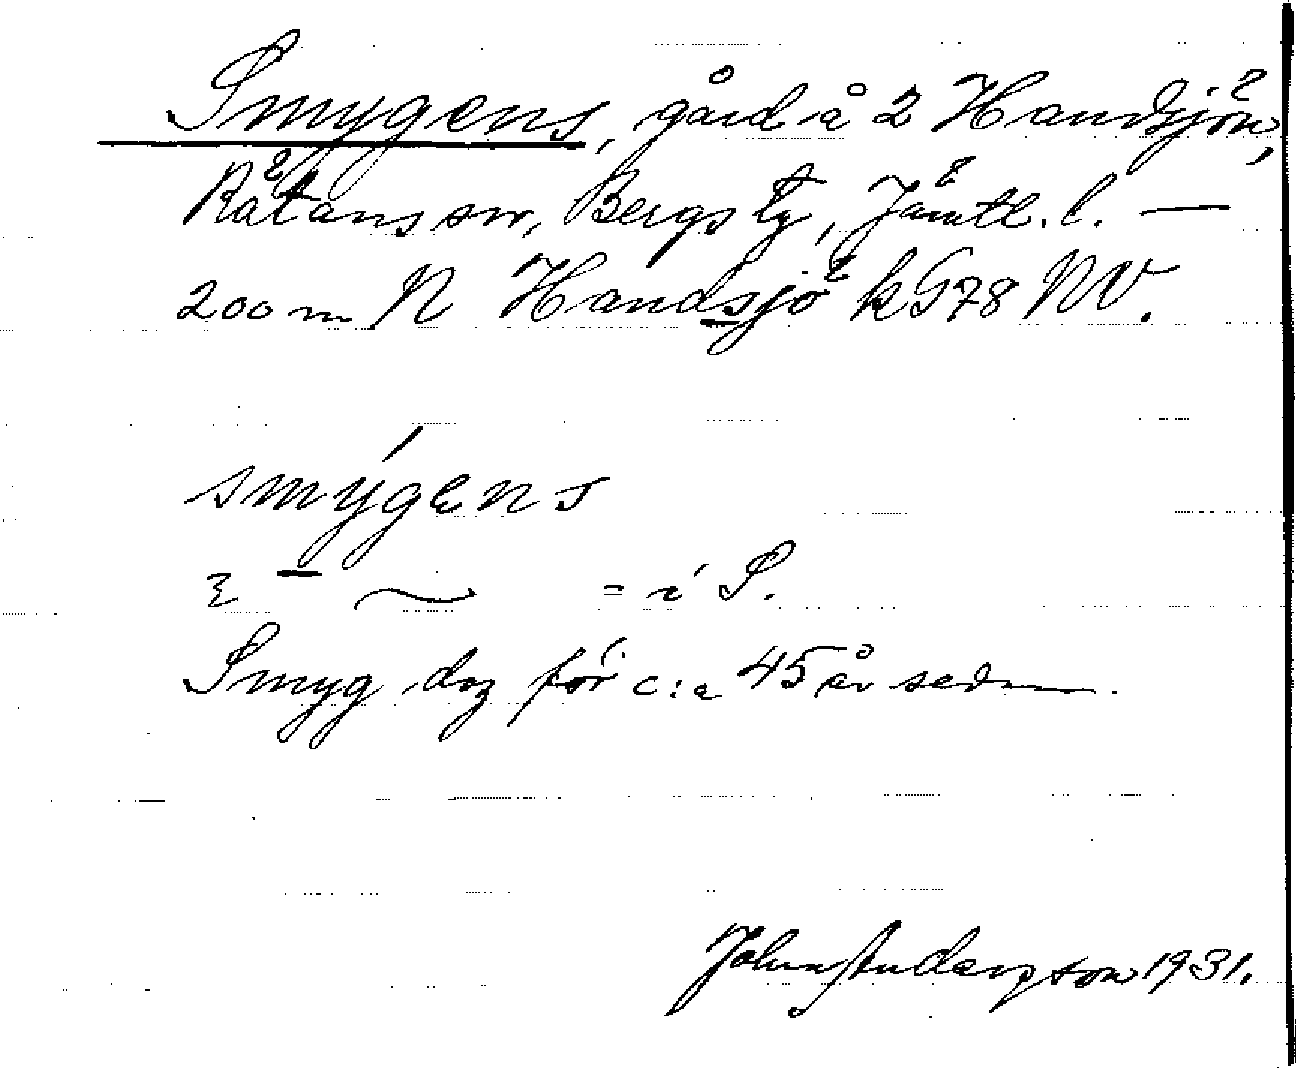 Smygens, gård å 2 Handsjön,
Rätans sn, Bergs tg, Jämtl. l. —
200 m N Handsjö k G78 NV.
smýgens
ɛ – ~ = i S.
Smyg dog för c:a 45 år sedan.
John Anderzson 1931.